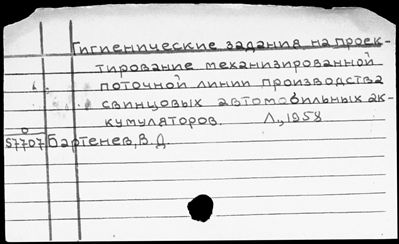 Гигиенические задания на проек-
тирование механизированной
поточной линии производства
свинцовых автомобильных ак-
кумуляторов. Л., 1958
О
57707 Бартенев, В. Д.